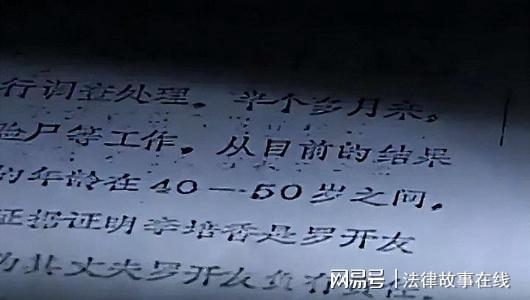 行调查处理。半个多月来，
验尸等工作，从目前的结果
的年龄在40—50岁之间，
证据证明李培香是罗开友
为其丈夫罗开友负有责任
网易号 | 法律故事在线